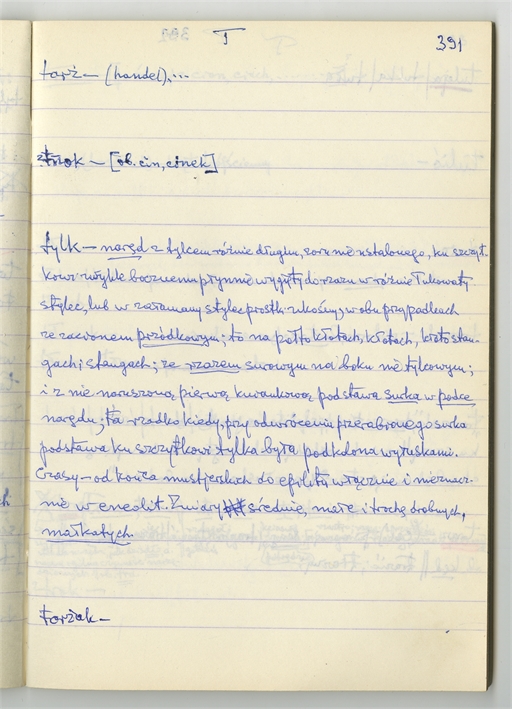 T
391
tarż – (handel),...
tnok – [ob. cin, cinek]
tylk – narząd z tylcem różnie długim, zoru nie ustalonego, ku szczyt-
kowi zwykle bocznemu płynnie wygięty do rzazu w różnie łukowaty
stylec, lub w załamany stylec prostk. ukośny; w obu przypadkach
ze zacionem przódkowym; to na półtokłotach, kłotach, kłoto stan-
gach i stangach; ze rzazem surowym na boku nie tylcowym;
i z nie naruszoną pierwą kurankową podstawą surka w podce
narządu; ta rzadko kiedy, przy odwróceniu przerabianego surka
podstawą ku szczytkowi tylka była podkolona wyłuskami.
Czasy – od końca mustjerskich do epilitu włącznie i nieznacz-
nie w eneolit. Żmiary średnie, małe i trochę drobnych,
małkatych.
torżak –